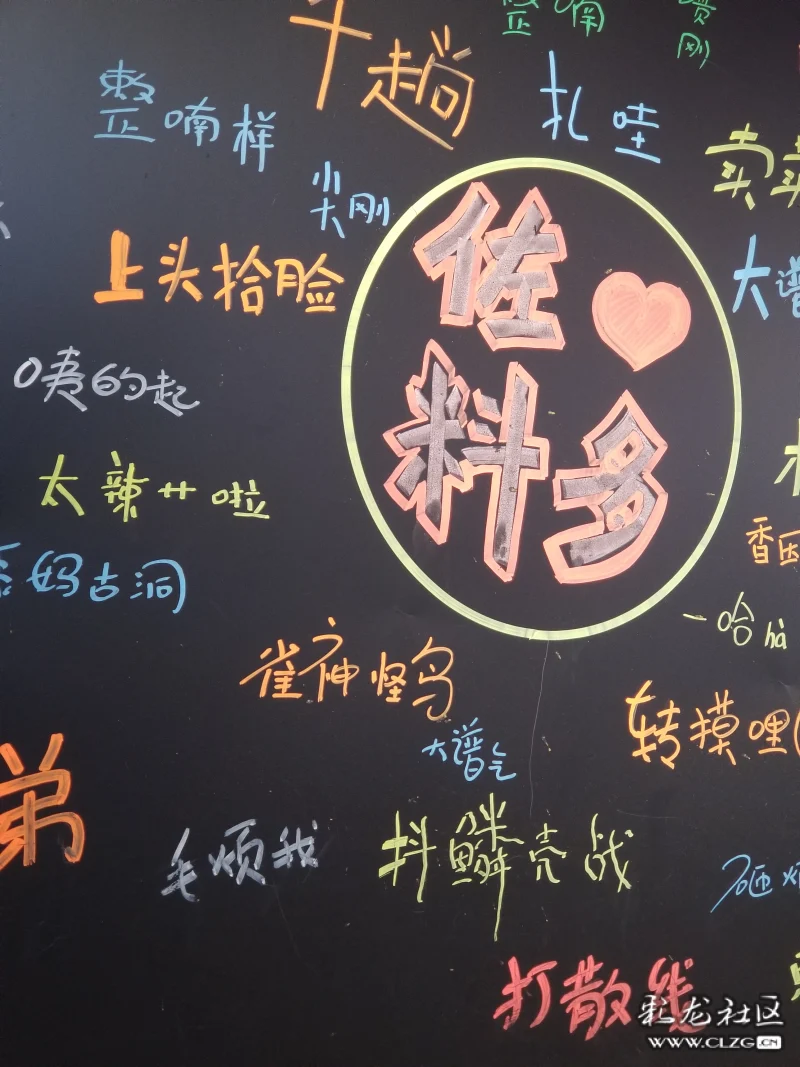 整喃
刚
干趟
整喃样
扎哇
尖刚
佐料多
上头拾脸
大谱
咦的起
太辣艹啦
妈古洞
香
一哈hà
雀神怪鸟
转摸哩
大谱气
弟
毛烦我
抖鳞壳战
砸烦
打散线
彩龙社区
WWW.CLZG.CN